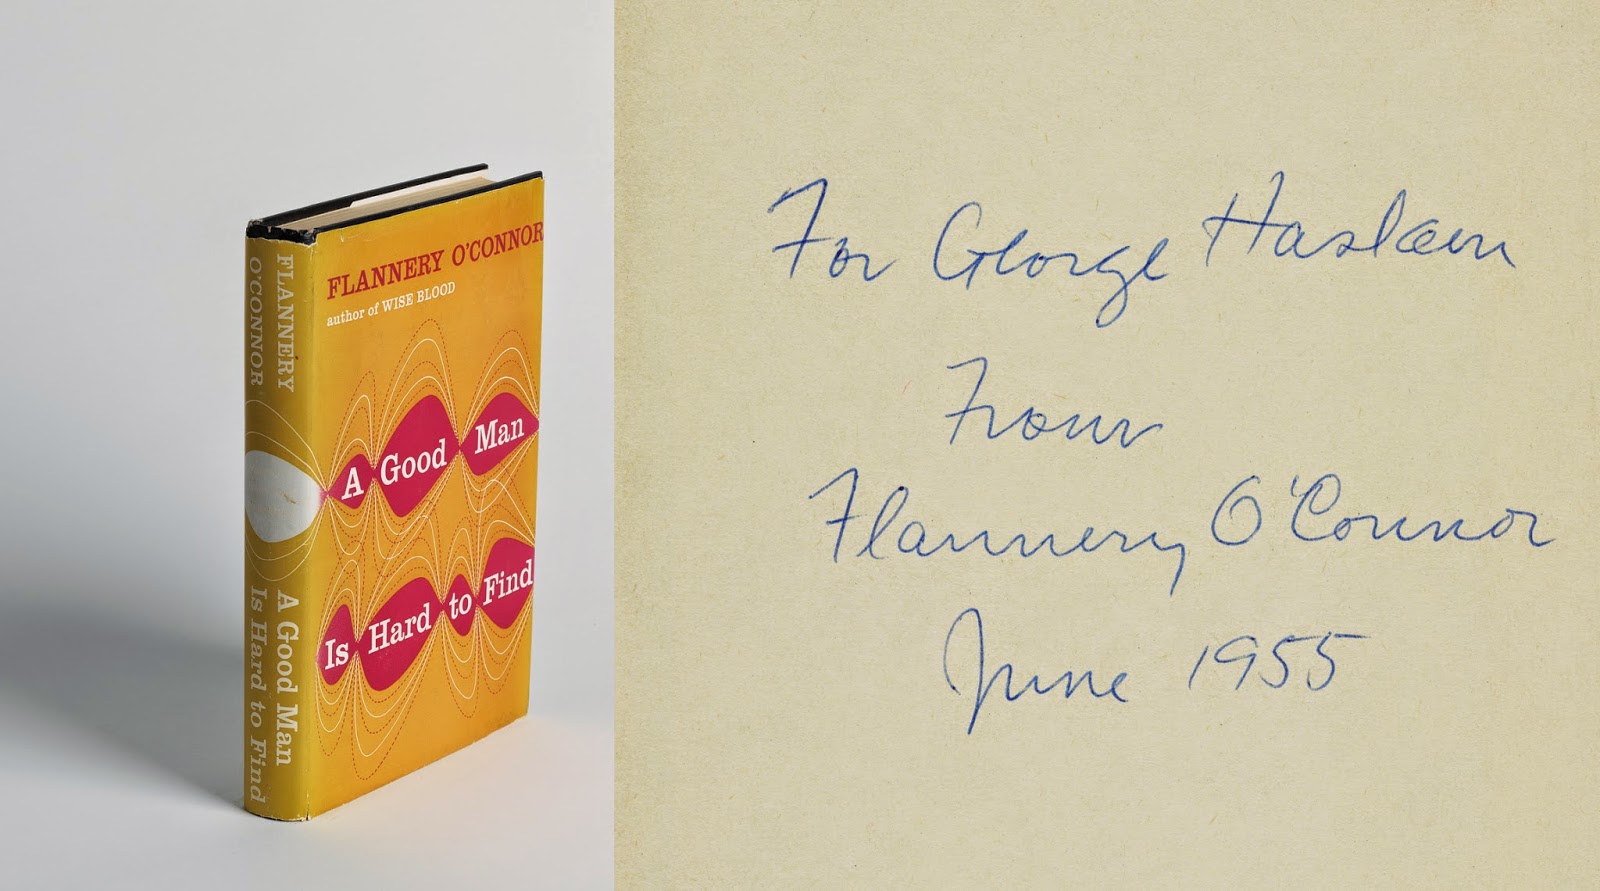 FLANNERY
O'CONNOR
A Good Man
Is Hard to Find
FLANNERY O'CONNOR
author of WISE BLOOD
A Good Man
Is Hard to Find
For George Haslam
From
Flannery O'Connor
June 1955